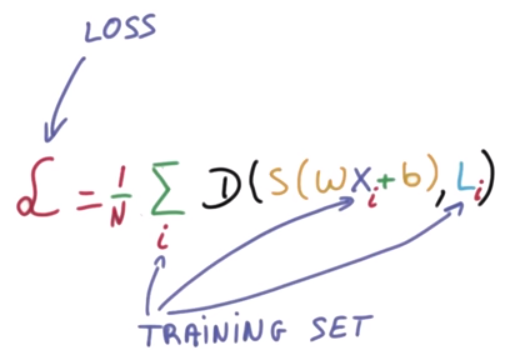 LOSS
ℒ = 1/N Σ_i D(S(wx_i+b), L_i)
TRAINING SET